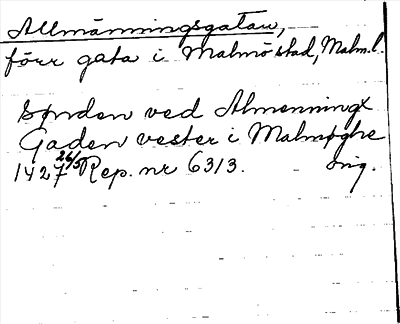 Allmänningsgatan,
förr gata i Malmö stad, Malm.l.
Synden ved Almenningx
Gaden vester i Malmøghe
1427 26/5 Rep. nr 6313. orig.